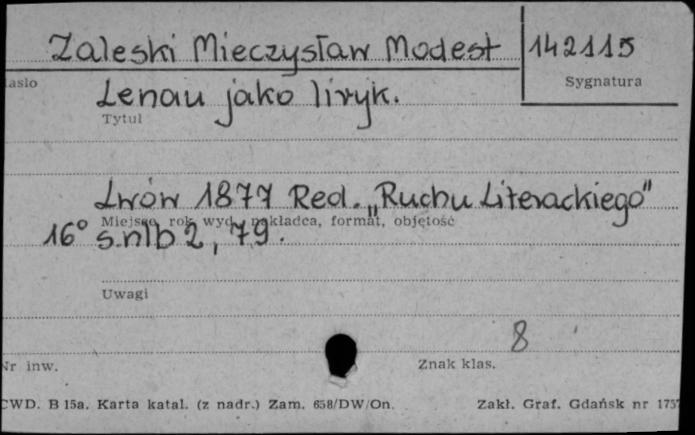 Zaleski Mieczysław Modest 142115
asło Sygnatura
Lenau jako liryk.
Tytuł
Lwów 1877 Red. „Ruchu Literackiego"
Miejsce, rok wyd., nakładca, format, objętość
16° s.nlb 2, 79.
Uwagi
8
Nr inw. Znak klas.
CWD. B 15a. Karta katal. (z nadr.) Zam. 658/DW/On. Zakł. Graf. Gdańsk nr 1757